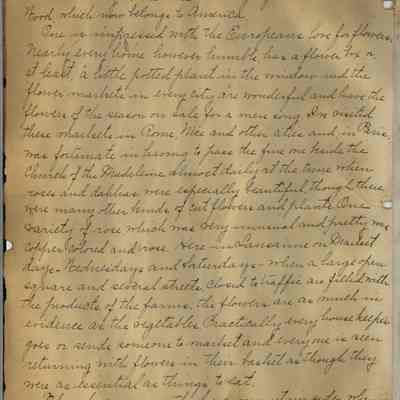 Wood which now belongs to America.
One is impressed with the Europeans love for flowers.
Nearly every home however humble has a flower box or
at least, a little potted plant in the window and the
flower markets in every city are wonderful and have the
flowers of the season on sale for a mere song. I've visited
these markets in Rome, Nice and other cities and in Paris,
was fortunate in having to pass the fine one beside the
Church of the Madeleine almost daily at the time when
roses and dahlias were especially beautiful, though there
were many other kinds of cut flowers and plants. One
variety of rose which was very unusual and pretty was
copper colored and rose. Here in Lausanne on Market
days - Wednesdays and Saturdays - when a large open
square and several streets closed to traffic are filled with
the products of the farms, the flowers are as much in
evidence as the vegetables. Practically every housekeeper
goes or sends someone to market and everyone is seen
returning with flowers in their basket as though they
were as essential as things to eat.